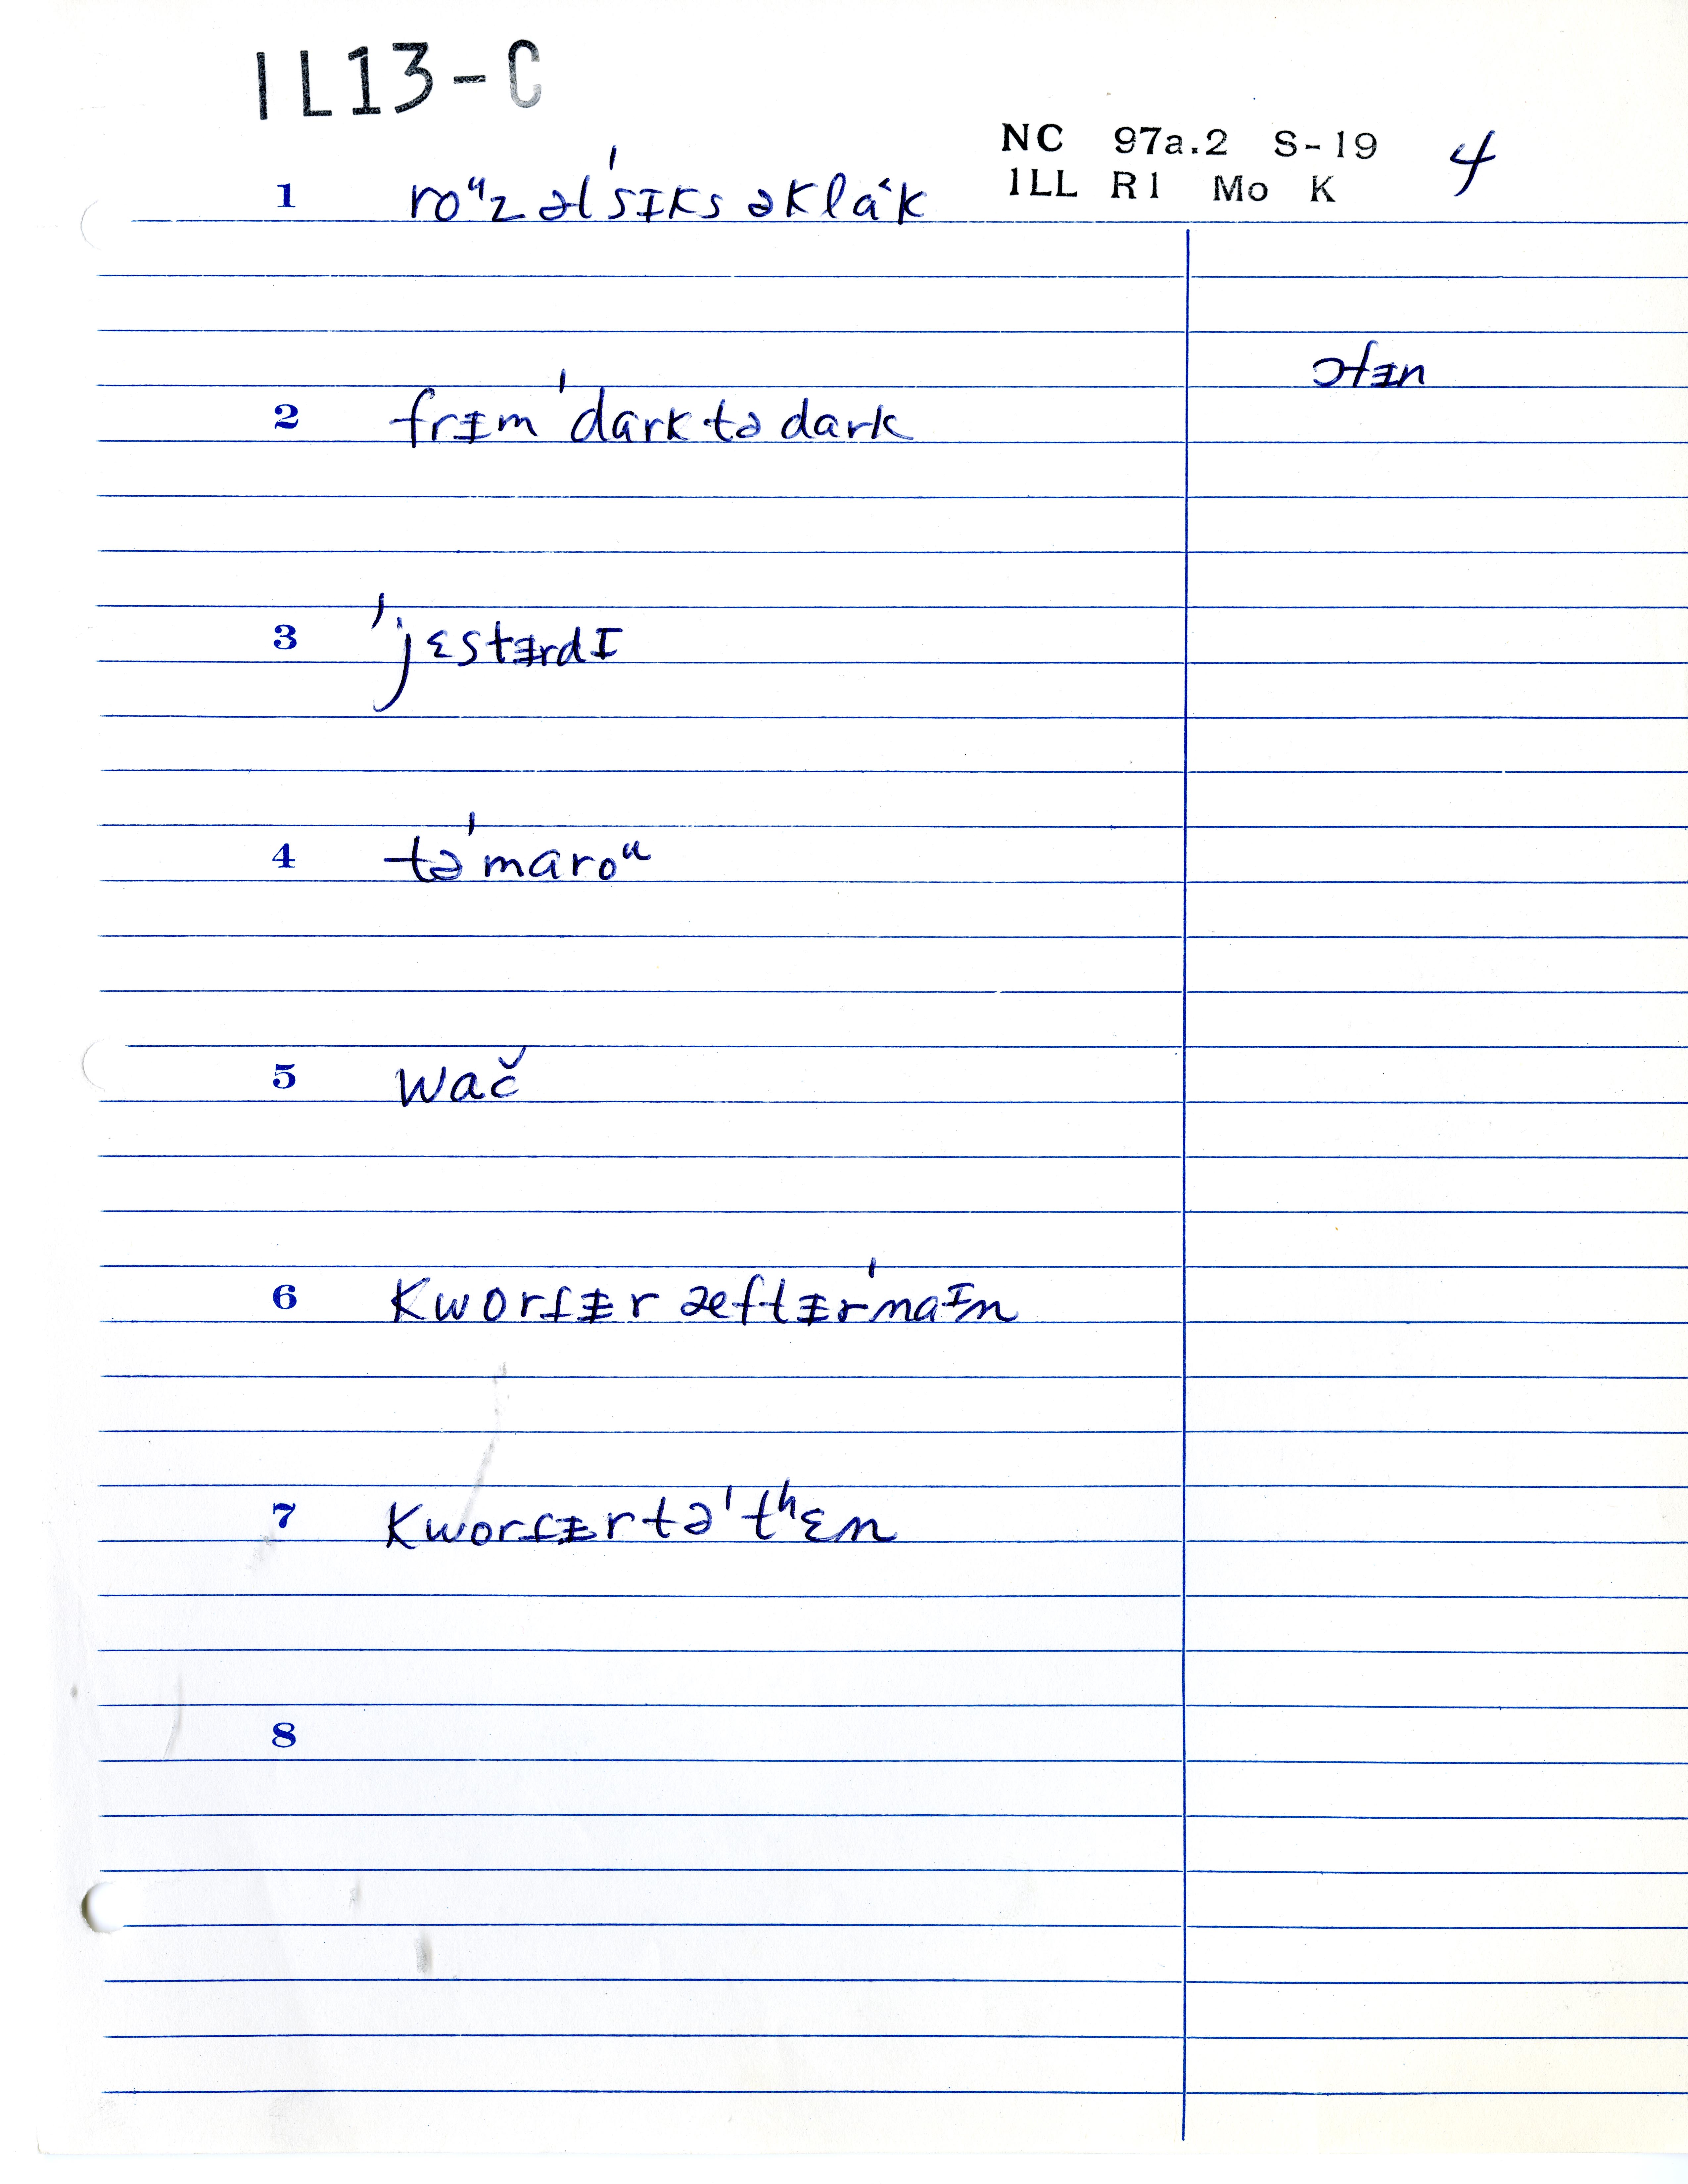 1L13-C
NC 97a.2 S-19 4
1LL R1 Mo K
1 roᵘz əl ˈsɪks əklɑ˂k
ɔfᵻn
2 frᵻm ˈdɑrk tə dɑrk
3 ˈjɛstᵻrdɪ
4 təˈmɑroᵘ
5 wɑč
6 kworɾᵻr æftᵻrˈnaᶦn
7 kworɾᵻr tə ˈtʰɛn
8